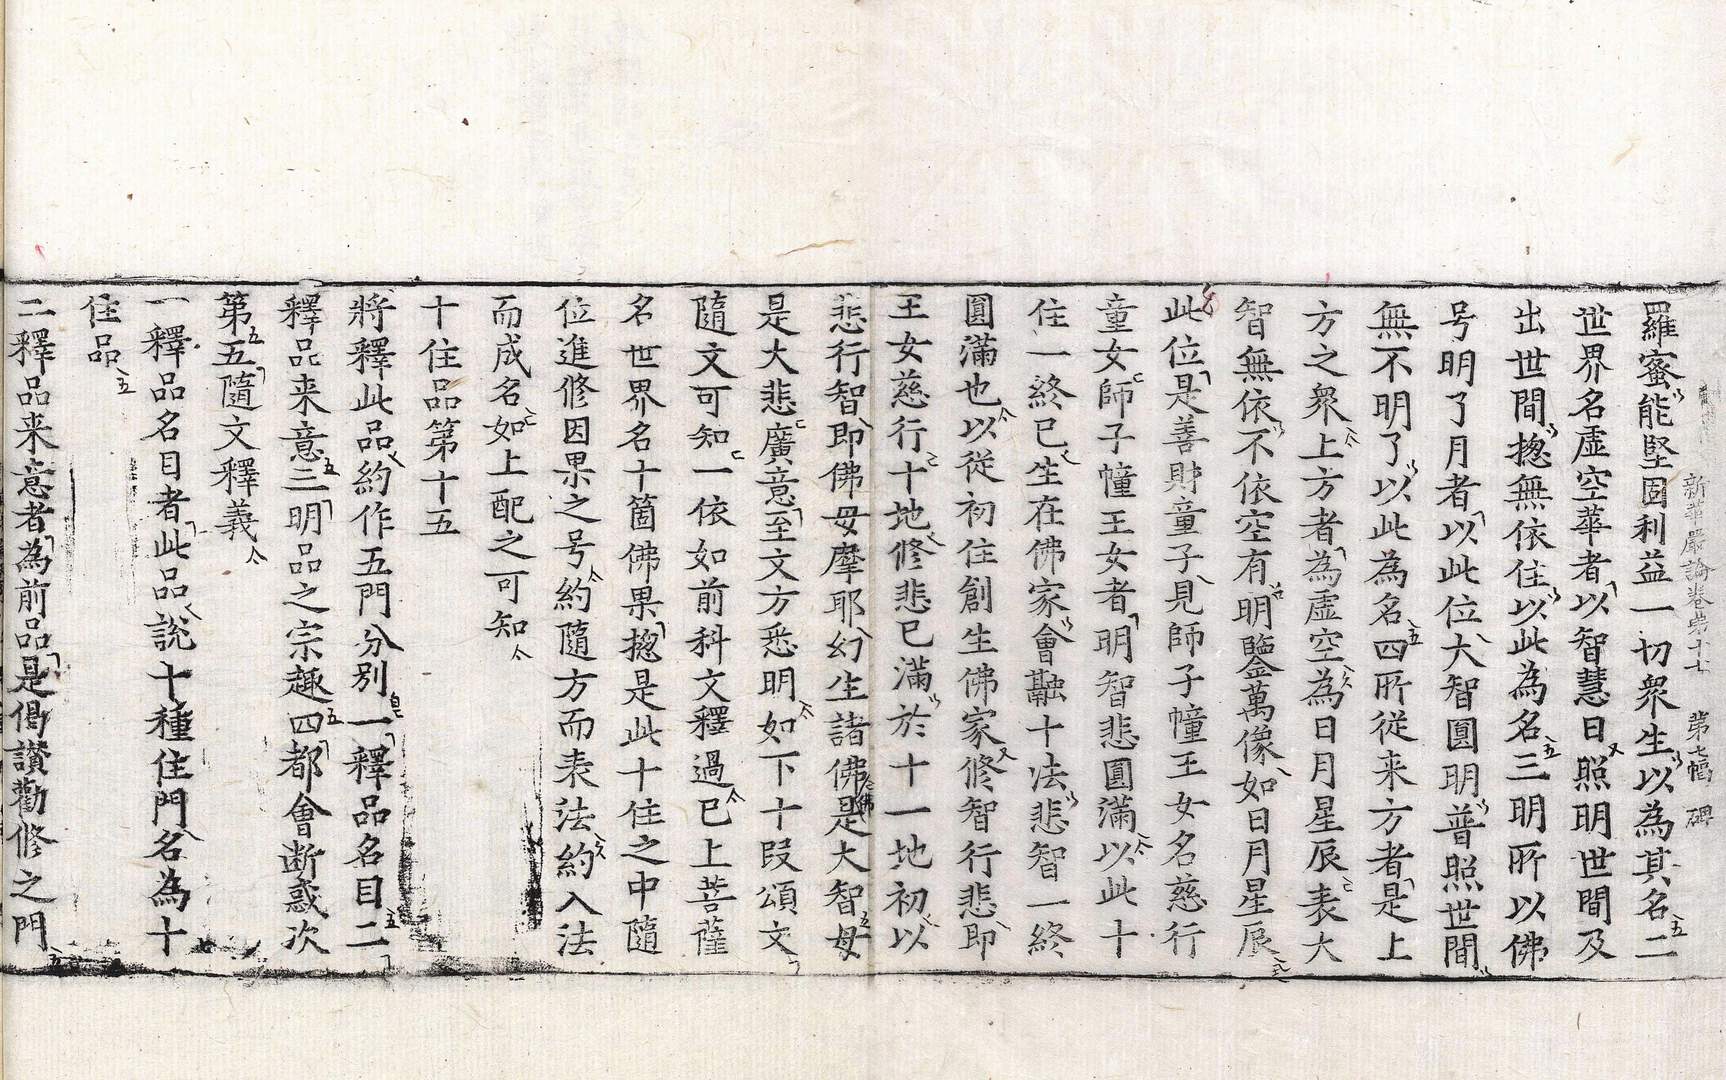 新華嚴論卷第十七　第七幅　碑
羅蜜能堅固利益一切衆生以為其名二
世界名虛空華者以智慧日照明世間及
出世間揔無依住以此為名三明所以佛
号明了月者以此位大智圓明普照世間
無不明了以此為名四所從来方者是上
方之衆上方者為虛空為日月星辰表大
智無依不依空有明鑒萬像如日月星辰
此位是善財童子見師子幢王女名慈行
童女師子幢王女者明智悲圓滿以此十
住一終已生在佛家會融十法悲智一終
圓滿也以從初住創生佛家修智行悲即
王女慈行十地修悲已滿於十一地初以
悲行智即佛母摩耶幻生諸佛是大智母
是大悲廣意至文方悉明如下十段頌文
隨文可知一依如前科文釋過已上菩薩
名世界名十箇佛果揔是此十住之中隨
位進修因果之号約隨方而表法約入法
而成名如上配之可知
十住品第十五
將釋此品約作五門分別一釋品名目二
釋品来意三明品之宗趣四都會断惑次
第五隨文釋義
一釋品名目者此品說十種住門名為十
住品
二釋品来意者為前品是偈讃勸修之門